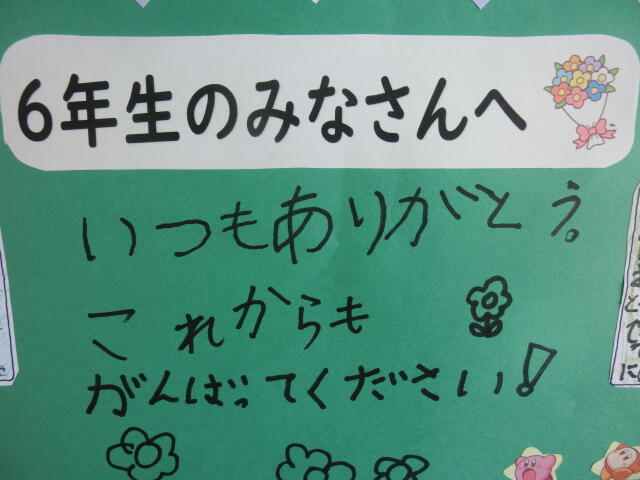 6年生のみなさんへ
いつもありがとう。
これからも
がんばってください!